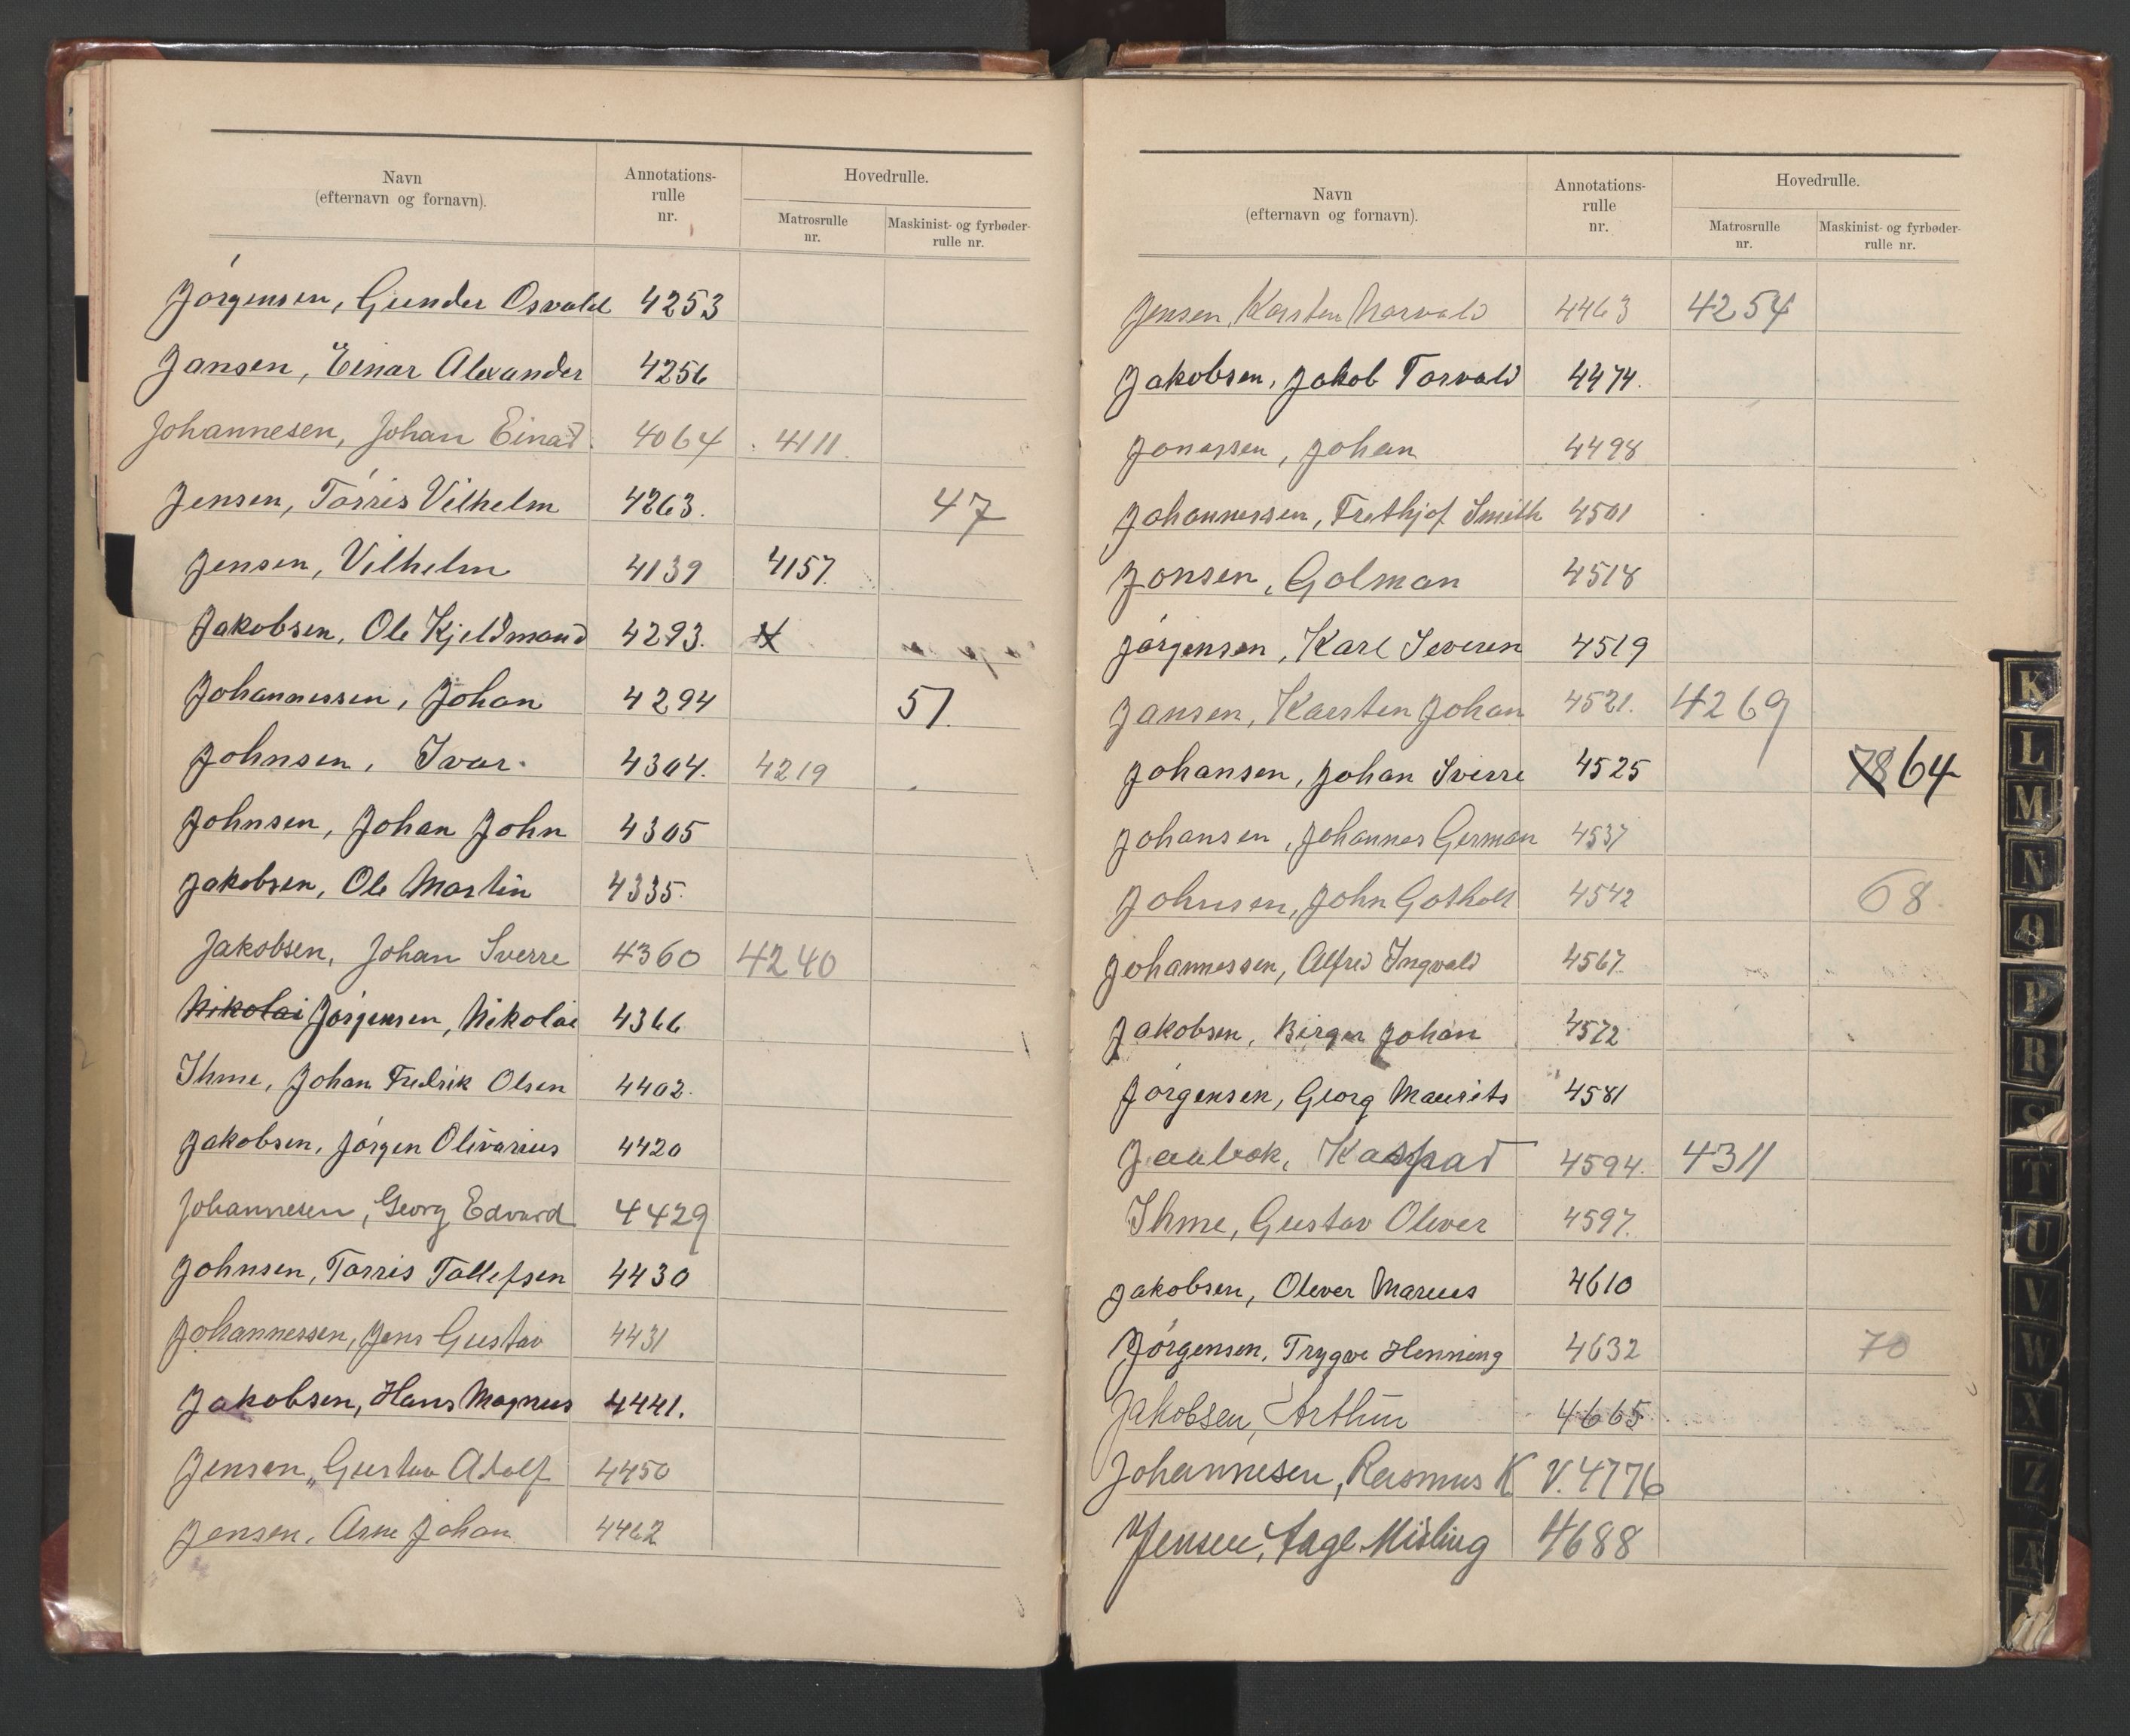 Navn
(efternavn og fornavn).
Annotations-
rulle
nr.
Hovedrulle.
Matrosrulle
nr.
Maskinist- og fyrbøder-
rulle nr.
Jørgensen, Gunder Osvald 4253
Jansen, Einar Alexander 4256
Johannesen, Johan Einar. 4064 4111.
Jensen, Tørris Vilhelm 4263. 47
Jensen, Vilhelm 4139 4157.
Jakobsen, Ole Kjeldmand 4293.
Johannessen, Johan 4294 51.
Johnsen, Ivar. 4304. 4219
Johnsen, Johan John 4305
Jakobsen, Ole Martin 4335.
Jakobsen, Johan Sverre 4360 4240
Nikolai Jørgensen, Nikolai 4366
Ihme, Johan Fredrik Olsen 4402.
Jakobsen, Jørgen Olivarius 4420
Johannesen, Georg Edvard 4429
Johnsen, Tørris Tollefsen 4430
Johannessen, Jens Gustav 4431
Jakobsen, Hans Magnus 4441.
Jensen, Gustav Adolf 4450
Jensen, Arne Johan 4462
Navn
(efternavn og fornavn).
Annotations-
rulle
nr.
Hovedrulle.
Matrosrulle
nr.
Maskinist- og fyrbøder-
rulle nr.
Jensen, Karsten Narvald 4463 4254
Jakobsen, Jakob Torvald 4474.
Jonassen, Johan 4498
Johannessen, Frithjof Smith 4501
Jonsen, Golman 4518
Jørgensen, Karl Severin 4519
Jansen, Karsten Johan 4521. 4269
Johansen, Johan Sverre 4525 78 64
Johansen, Johannes German 4537
Johnsen, John Gotholt 4542 68.
Johannessen, Alfred Ingvald 4567.
Jakobsen, Birger Johan 4572
Jørgensen, Georg Maurits 4581
Jaabæk, Kaspar 4594. 4311
Ihme, Gustav Oliver 4597.
Jakobsen, Oliver Marius 4610
Jørgensen, Trygve Henning 4632 70
Jakobsen, Arthur 4665
Johannesen, Rasmus K V. 4776
Jensen, Aage Misling 4688
K
L
M
N
O
P
R
S
T
U
V
W
X
Z